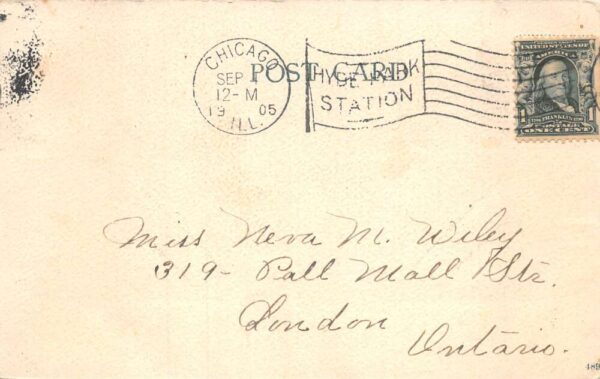 CHICAGO
SEP
12-M
19 05
ILL.
POST CARD
HYDE PARK
STATION
UNITED STATES OF
AMERICA
FRANKLIN
POSTAGE
1 ONE CENT 1
Miss Neva M. Wiley
319- Pall Mall Str.
London
Ontario.